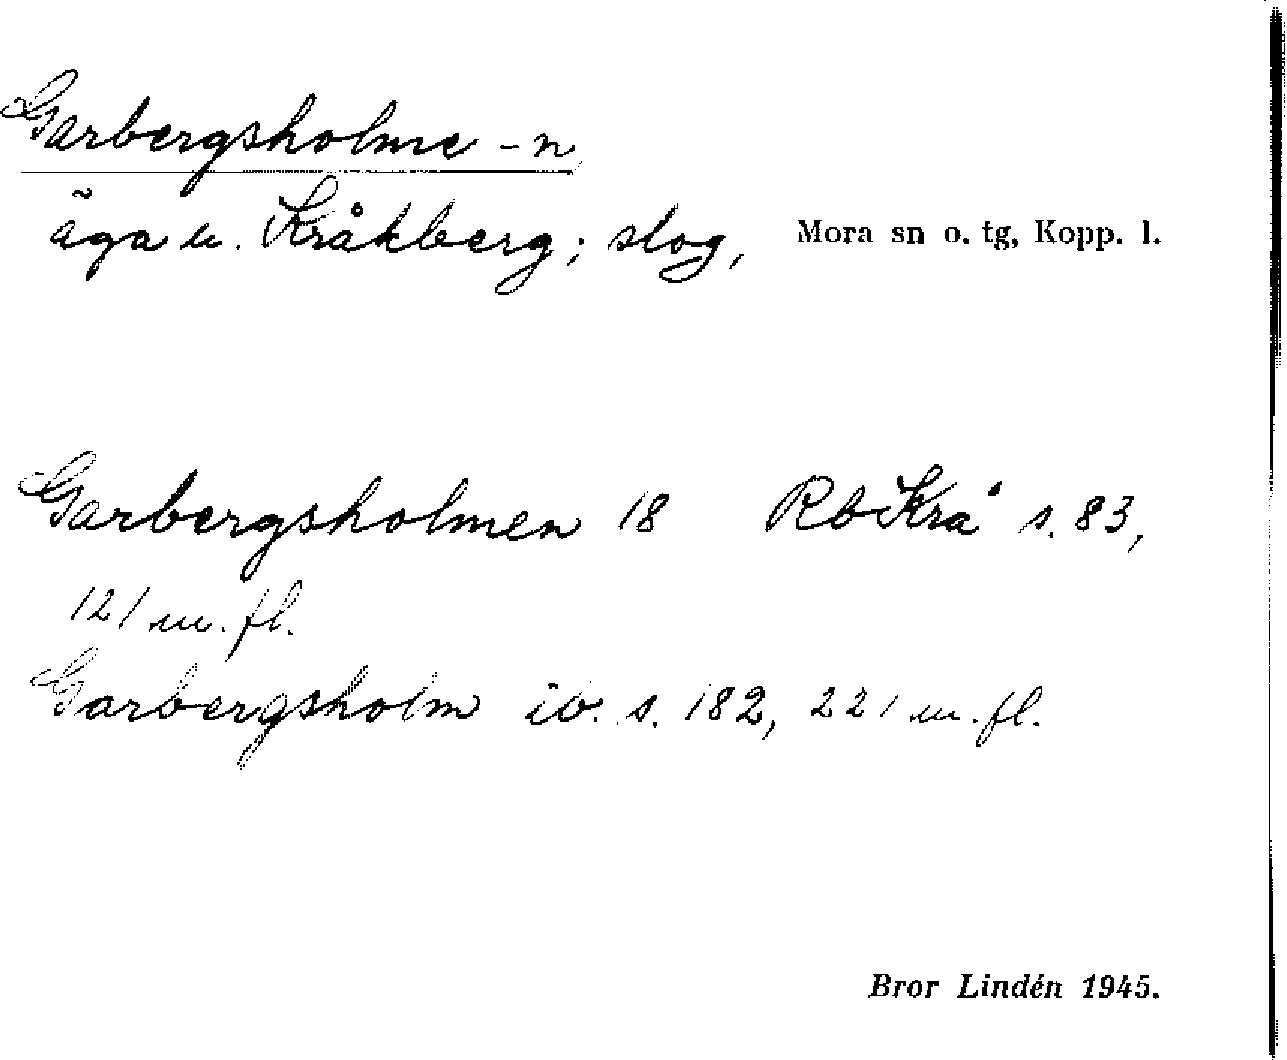 Garbergsholme -n
äga u. Kråkberg; slog, Mora sn o. tg, Kopp. l.
Garbergsholmen 18 RbKrå s. 83,
121 m. fl.
Garbergsholm ib. s. 182, 221 m. fl.
Bror Lindén 1945.